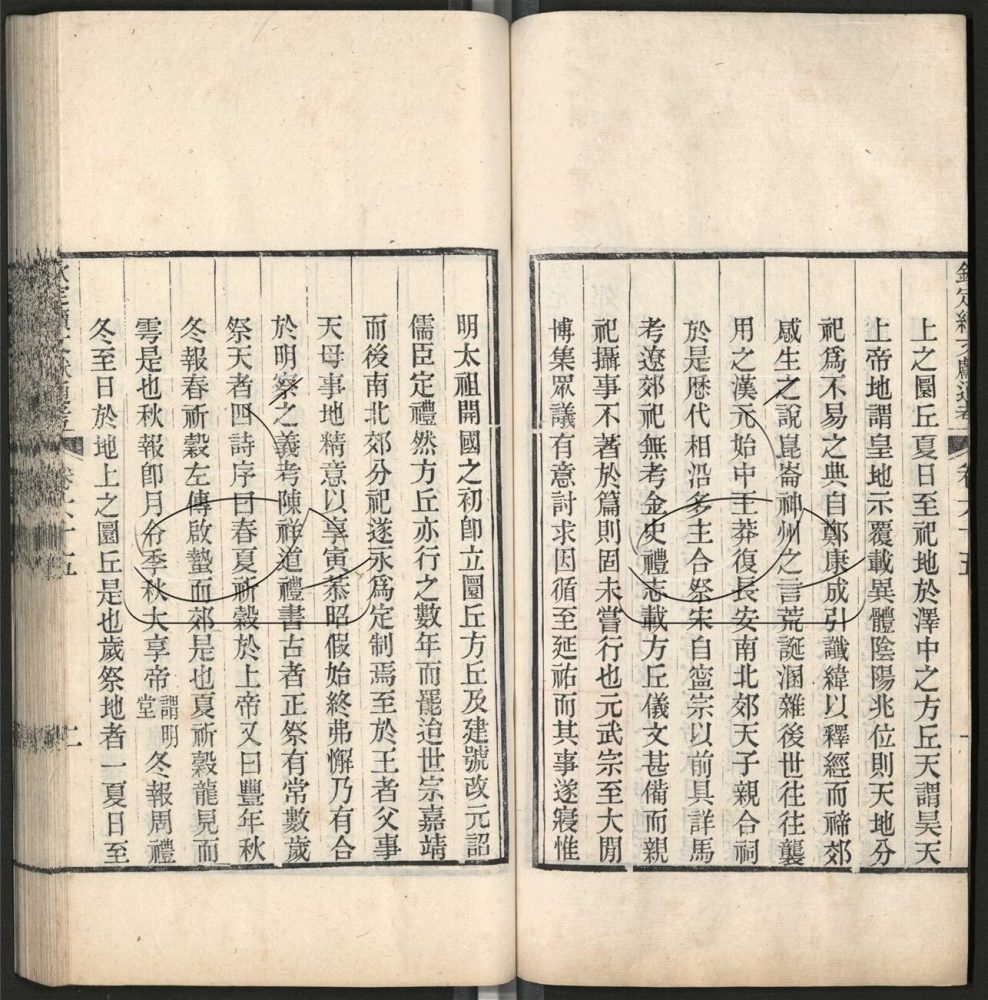 欽定續文獻通考 卷六十五 一
上之圜丘夏日至祀地於澤中之方丘天謂昊天
上帝地謂皇地示覆載異體陰陽兆位則天地分
祀爲不易之典自鄭康成引讖緯以釋經而禘郊
感生之說崑崙神州之言荒誕溷雜後世往往襲
用之漢元始中王莽復長安南北郊天子親合祠
於是歷代相沿多主合祭宋自寧宗以前具詳馬
考遼郊祀無考金史禮志載方丘儀文甚備而親
祀攝事不著於篇則固未嘗行也元武宗至大閒
博集眾議有意討求因循至延祐而其事遂寢惟
明太祖開國之初卽立圜丘方丘及建號改元詔
儒臣定禮然方丘亦行之數年而罷迨世宗嘉靖
而後南北郊分祀遂永爲定制焉至於王者父事
天母事地精意以享寅恭昭假始終弗懈乃有合
於明察之義考陳祥道禮書古者正祭有常數歲
祭天者四詩序曰春夏祈穀於上帝又曰豐年秋
冬報春祈穀左傳啟蟄而郊是也夏祈穀龍見而
雩是也秋報卽月令季秋大享帝謂明堂冬報周禮
冬至日於地上之圜丘是也歲祭地者一夏日至
欽定續文獻通考 卷六十五 二